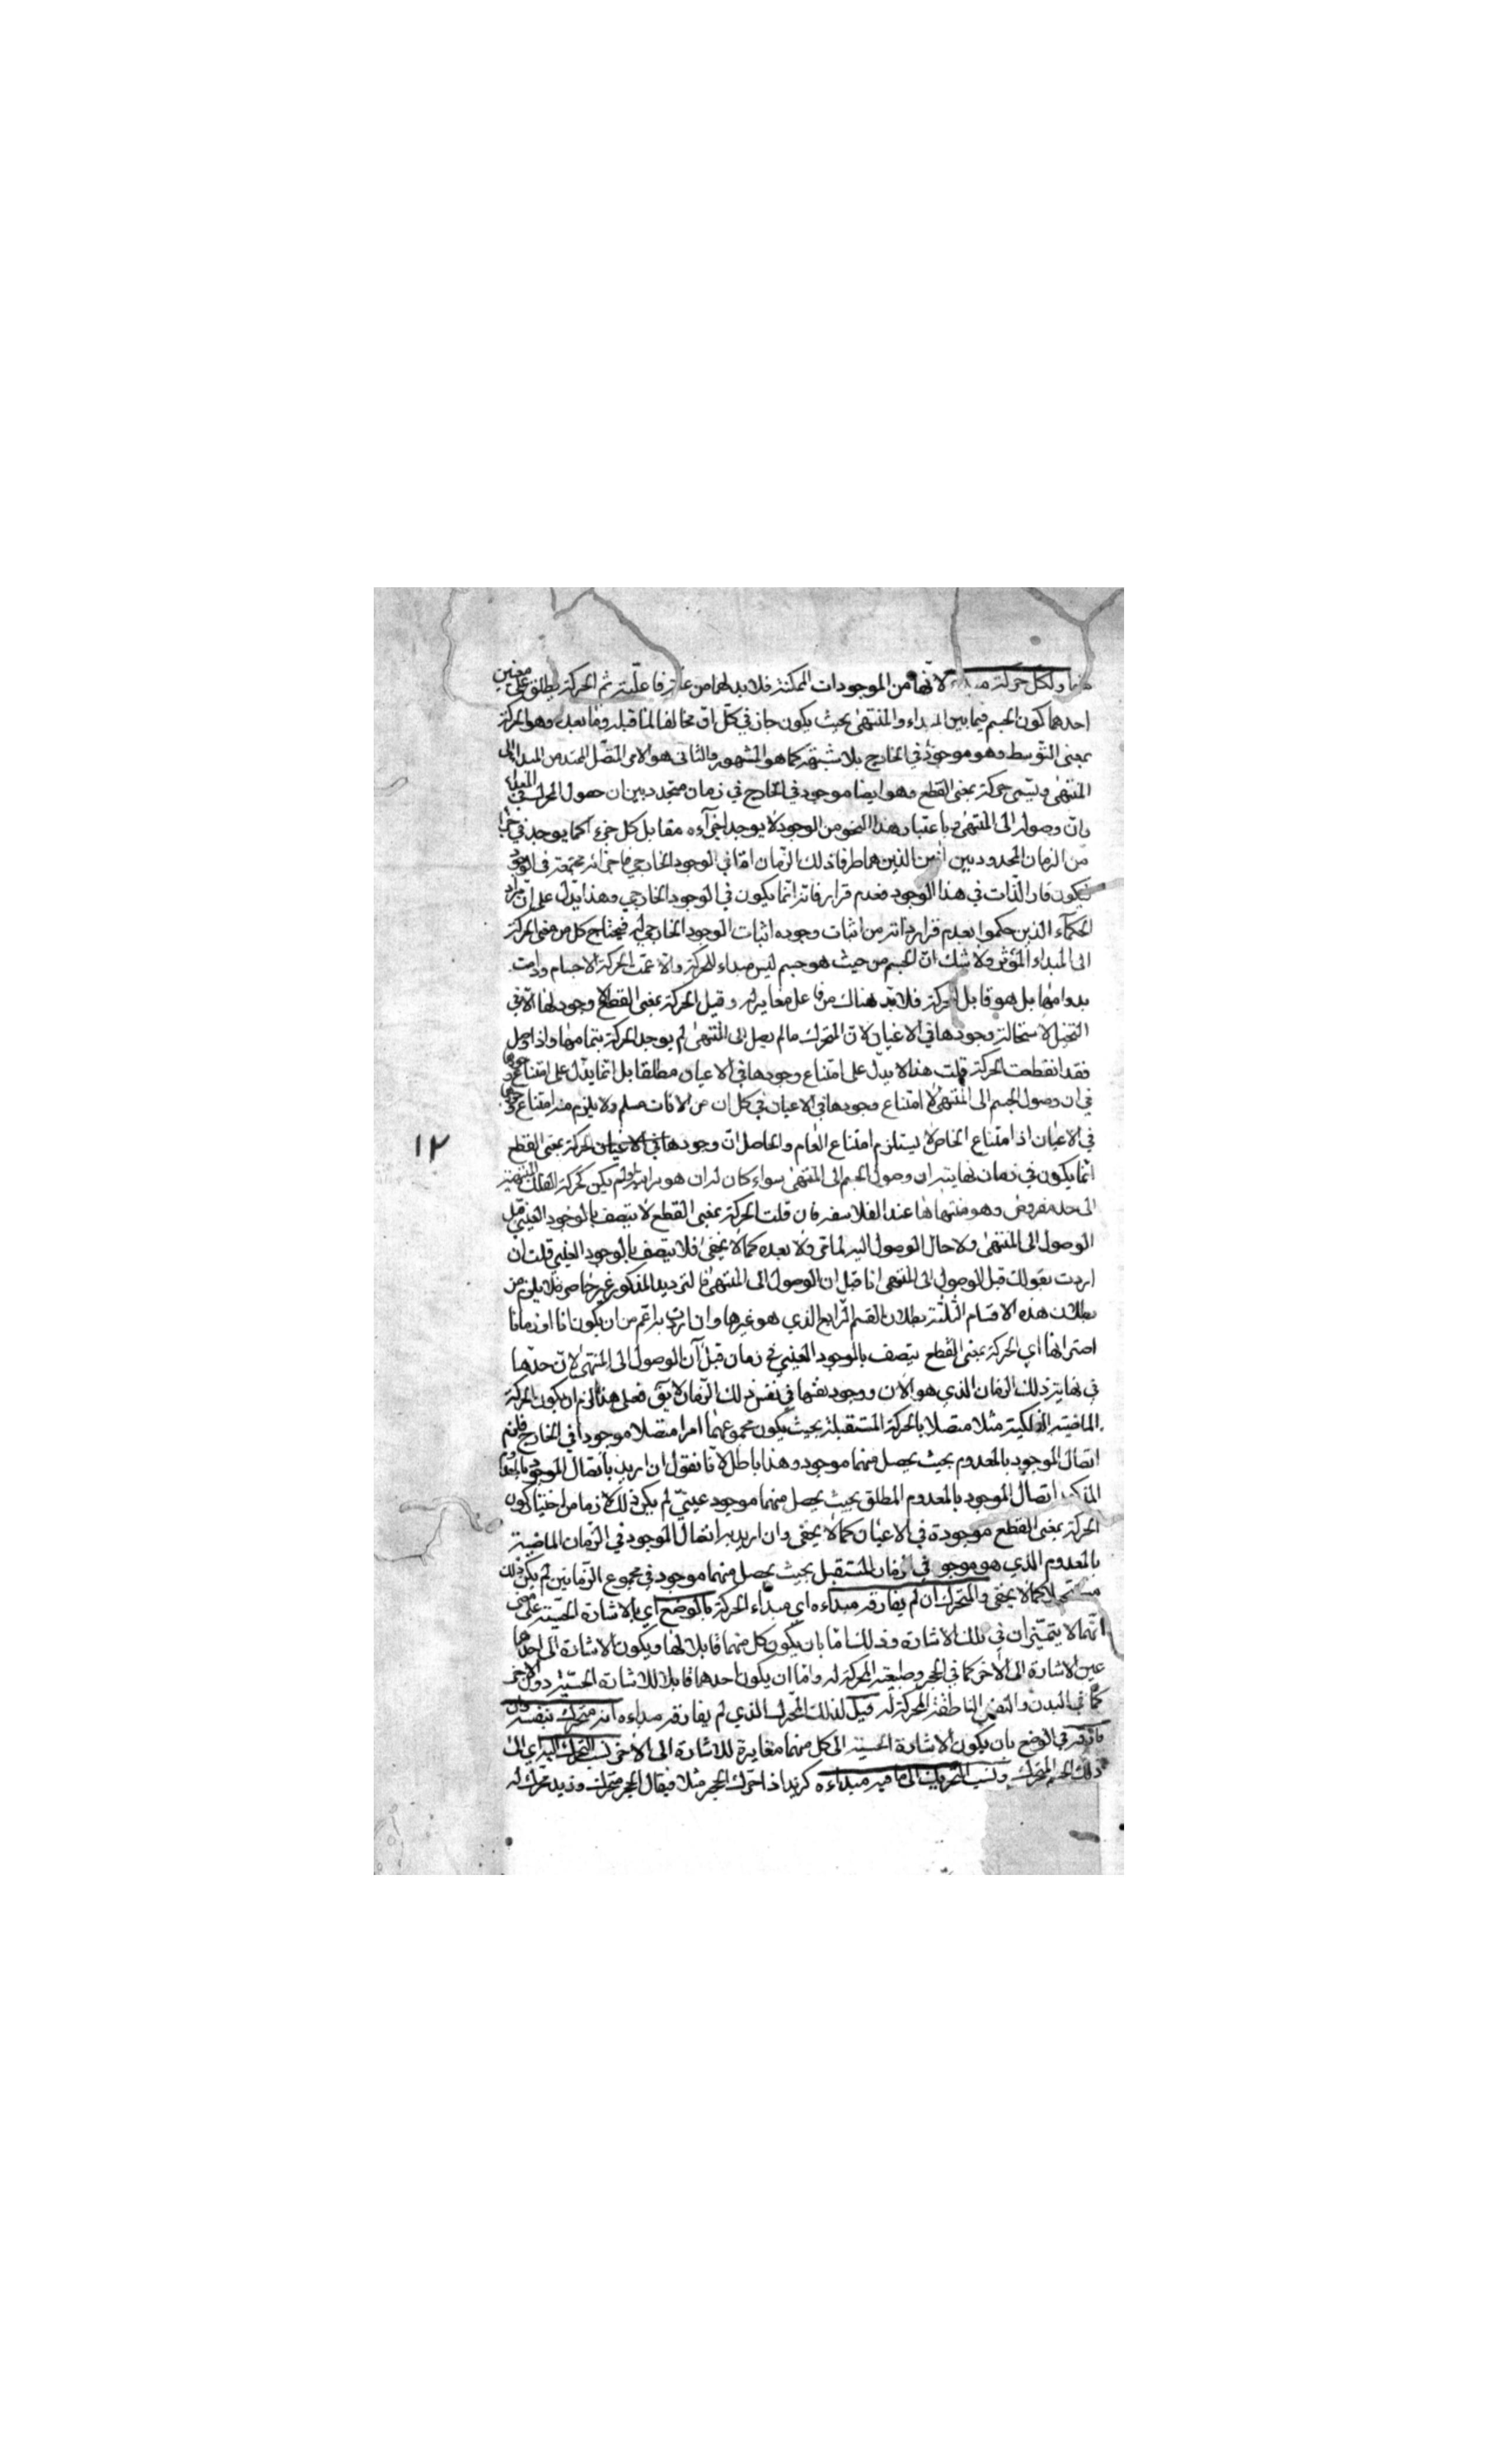 ولكل حركة لانها من الموجودات الممكنة فلا بد لها من علة فاعلية ثم الحركة يطلق على معنيين
احدهما كون الجسم فيما بين المبداء والمنتهى بحيث يكون حاله في كل ان مخالفا لما قبله وما بعده وهو الحركة
بمعنى التوسط وهو موجود في الخارج بلا شبهة كما هو المشهور والثاني هو الامر المتصل الممتد من المبداء الى
المنتهى وتسمى حركة بمعنى القطع وهو ايضا موجود في الخارج في زمان متجدد بين ان حصول المتحرك في المبداء
وان وصوله الى المنتهى وباعتبار هذا النحو من الوجود لا يوجد اجزآءه مقابل كل جزء كما يوجد في
من الزمان المحدود بين انين الذين هما طرفا ذلك الزمان اما في الوجود الخارجي فاجزائه مجتمعة في الوجود
فيكون قار الذات في هذا الوجود فعدم قراره فانه انما يكون في الوجود الخارجي وهذا يدل على ان مراد
الحكمآء الذين حكموا بعدم قرار ذاته من اثبات وجوده اثبات الوجود الخارجي له فيحتاج كل من معنى الحركة
الى المبداء المؤثر ولا شك ان الجسم من حيث هو جسم ليس مبداء للحركة والا عمت الحركة الاجسام ودامت
بدوامها بل هو قابل للحركة فلا بد هناك من فاعل مغاير له وقيل الحركة بمعنى القطع لا وجود لها الا في
التخيل لاستحالة وجودها في الاعيان لان المتحرك ما لم يصل الى المنتهى لم يوجد الحركة بتمامها واذا وصل
فقد انقطعت الحركة قلت هذا لا يدل على امتناع وجودها في الاعيان مطلقا بل انما يدل على امتناع وجودها
في ان وصول الجسم الى المنتهى لا امتناع وجودها في الاعيان في كل ان من الانات مسلم ولا يلزم منه امتناع وجودها
في الاعيان اذ امتناع الخاص لا يستلزم امتناع العام والحاصل ان وجودها في الاعيان الحركة بمعنى القطع
١٢
انما يكون في زمان نهايته ان وصول الجسم الى المنتهى سواء كان لم يكن كحركة الفلك المنتهية
الى حد مفروض وهو منتهاها عند الفلاسفة فان قلت الحركة بمعنى القطع لا تتصف بالوجود العيني قبل
الوصول الى المنتهى ولا حال الوصول اليه لما مر ولا بعده كما لا يخفى فلا يتصف بالوجود العيني قلت ان
اردت بقولك قبل الوصول الى المنتهى انا قبل ان الوصول الى المنتهى فالترديد المذكور غير حاصر فلا يلزم من
بطلان هذه الاقسام الثلثة بطلان القسم الرابع الذي هو غيرها وان اردت به اعم من ان يكون انا او زمانا
اخترنا انها اي الحركة بمعنى القطع يتصف بالوجود العيني في زمان قبل آن الوصول الى المنتهى لان حدها
في نهاية ذلك الزمان الذي هو الان ووجود نفسها في نفس ذلك الزمان لا يق فعلى هذا لزم ان يكون الحركة
الماضية الفلكية مثلا متصلا بالحركة المستقبلة بحيث يكون مجموعهما امرا متصلا موجودا في الخارج فلزم
اتصال الموجود بالمعدوم بحيث يحصل منهما موجود وهذا باطل لانا نقول ان اريد باتصال الموجود بالمعدوم
المذكور اتصال الموجود بالمعدوم المطلق بحيث يحصل منهما موجود عيني لم يكن ذلك لازما من اختيار كون
الحركة بمعنى القطع موجودة في الاعيان كما لا يخفى وان اريد به اتصال الموجود في الزمان الماضية
بالمعدوم الذي هو موجود في زمان المستقبل بحيث يحصل منهما موجود في مجموع الزمانين لم يكن ذلك
مستحيلا كما لا يخفى والمتحرك ان لم يفارقه مبداءه اي مبداء الحركة بالوضع اي بالاشارة الحسية على معنى
انهما لا يتميزان في تلك الاشارة وذلك اما بان يكون كل منهما قابلا لها ويكون الاشارة الى احدهما
عين الاشارة الى الاخر كما في الحجر وطبيعته المحركة له واما ان يكون احدهما قابلا للاشارة الحسية دون الاخر
كما في البدن والنفس الناطقة المحركة له قيل لذلك المتحرك الذي لم يفارقه مبداءه انه متحرك بنفسه وان
فارقه في الوضع بان يكون الاشارة الحسية الى كل منهما مغايرة للاشارة الى الاخر نسب التحرك البدي الى
ذلك الجسم المتحرك ونسب التحريك الى ما فيه مبداءه كزيد اذا حرك الحجر مثلا فيقال الحجر متحرك وزيد محرك له